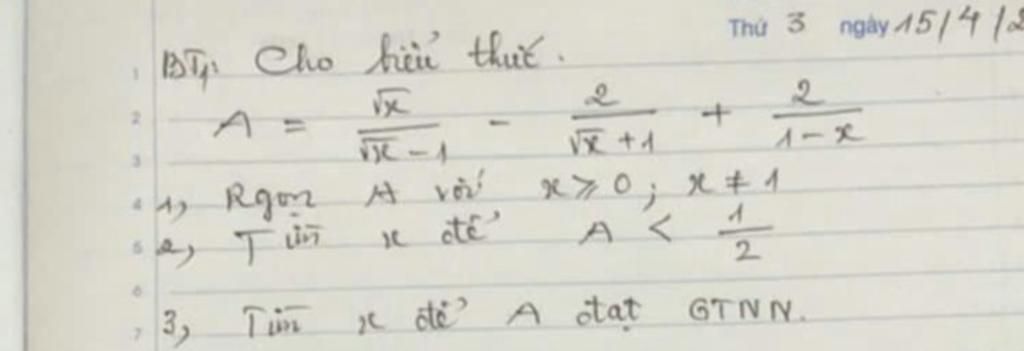 Thứ 3 ngày 15/4/2
BT1: Cho biểu thức.
A = √x/(√x - 1) - 2/(√x + 1) + 2/(1 - x)
1, Rgọn A với x ≥ 0; x ≠ 1
2, Tìm x để A < 1/2
3, Tìm x để A đạt GTNN.